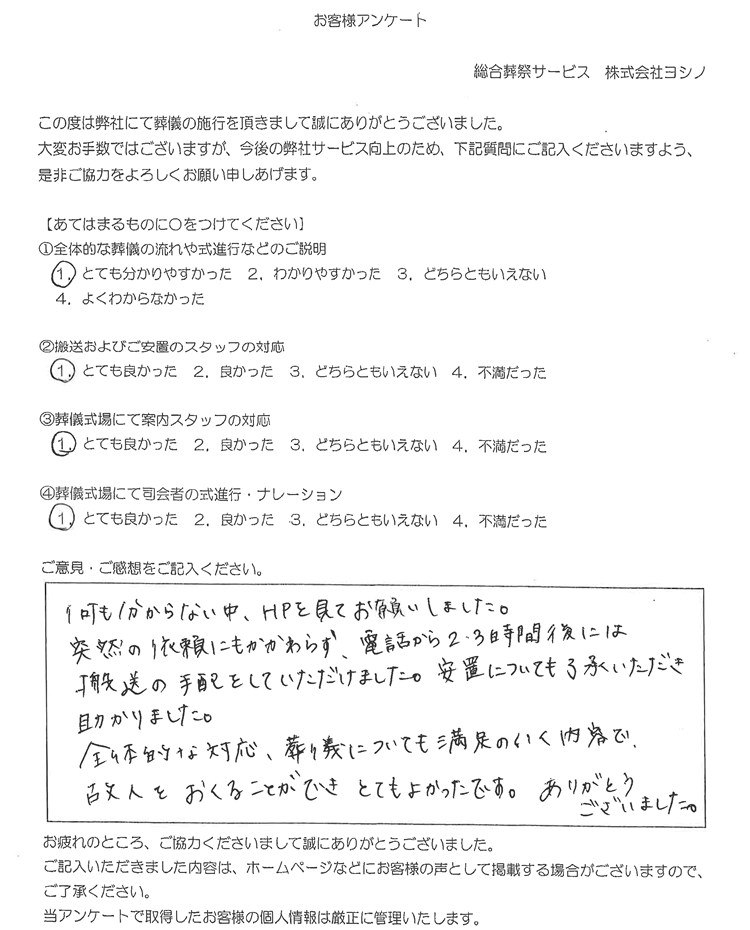 お客様アンケート
総合葬祭サービス　株式会社ヨシノ
この度は弊社にて葬儀の施行を頂きまして誠にありがとうございました。
大変お手数ではございますが、今後の弊社サービス向上のため、下記質問にご記入くださいますよう、
是非ご協力をよろしくお願い申しあげます。
【あてはまるものに〇をつけてください】
①全体的な葬儀の流れや式進行などのご説明
1．とても分かりやすかった　2．わかりやすかった　3．どちらともいえない
4．よくわからなかった
②搬送およびご安置のスタッフの対応
1．とても良かった　2．良かった　3．どちらともいえない　4．不満だった
③葬儀式場にて案内スタッフの対応
1．とても良かった　2．良かった　3．どちらともいえない　4．不満だった
④葬儀式場にて司会者の式進行・ナレーション
1．とても良かった　2．良かった　3．どちらともいえない　4．不満だった
ご意見・ご感想をご記入ください。
何も分からない中、HPを見てお願いしました。
突然の依頼にもかかわらず、電話から2.3時間後には
搬送の手配をしていただけました。安置についても了承いただき
助かりました。
全体的な対応、葬儀についても満足のいく内容で、
故人を おくることができ とてもよかったです。 ありがとう
ございました。
お疲れのところ、ご協力くださいまして誠にありがとうございました。
ご記入いただきました内容は、ホームページなどにお客様の声として掲載する場合がございますので、
ご了承ください。
当アンケートで取得したお客様の個人情報は厳正に管理いたします。